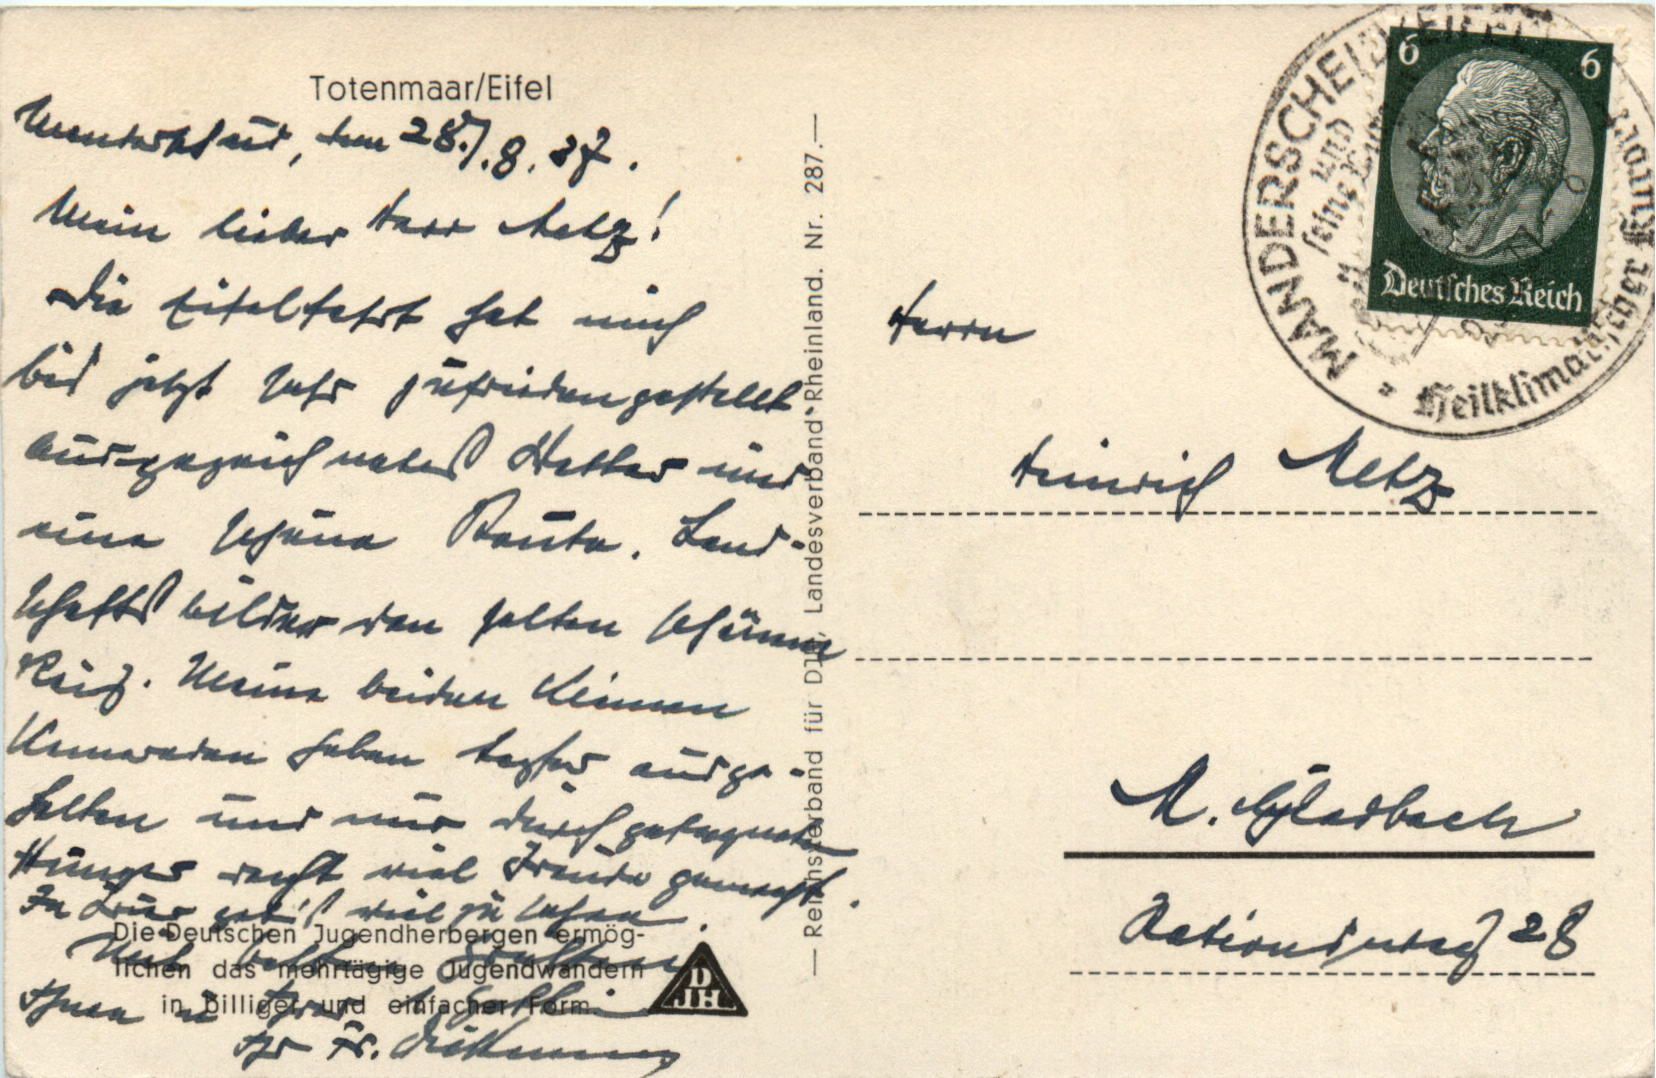 Totenmaar/Eifel
den 28./.8.37.
Mein lieber Herr Metz!
Die Eifelfahrt hat mich
bis jetzt sehr zufriedengestellt
Ausgezeichnetes Wetter und
eine schöne Route. Land-
schaftsbilder von selten schönem
Reiz. Meine beiden kleinen
Kameraden haben tapfer ausge-
halten und mir durch gesegneten
Hunger recht viel Freude gemacht.
In Trier gab's viel zu sehen.
Mit besten Grüßen
Ihnen u. Ihrer
Ihr Fr.
Die Deutschen Jugendherbergen ermög-
lichen das mehrtägige Jugendwandern
in billiger und einfacher Form.
DJH
Reichsverband für DJH Landesverband Rheinland. Nr. 287.
MANDERSCHEID/EIFEL
und seine
Heilklimatischer Kurort
6 6
Deutsches Reich
Herrn
Heinrich Metz
M. Gladbach
28